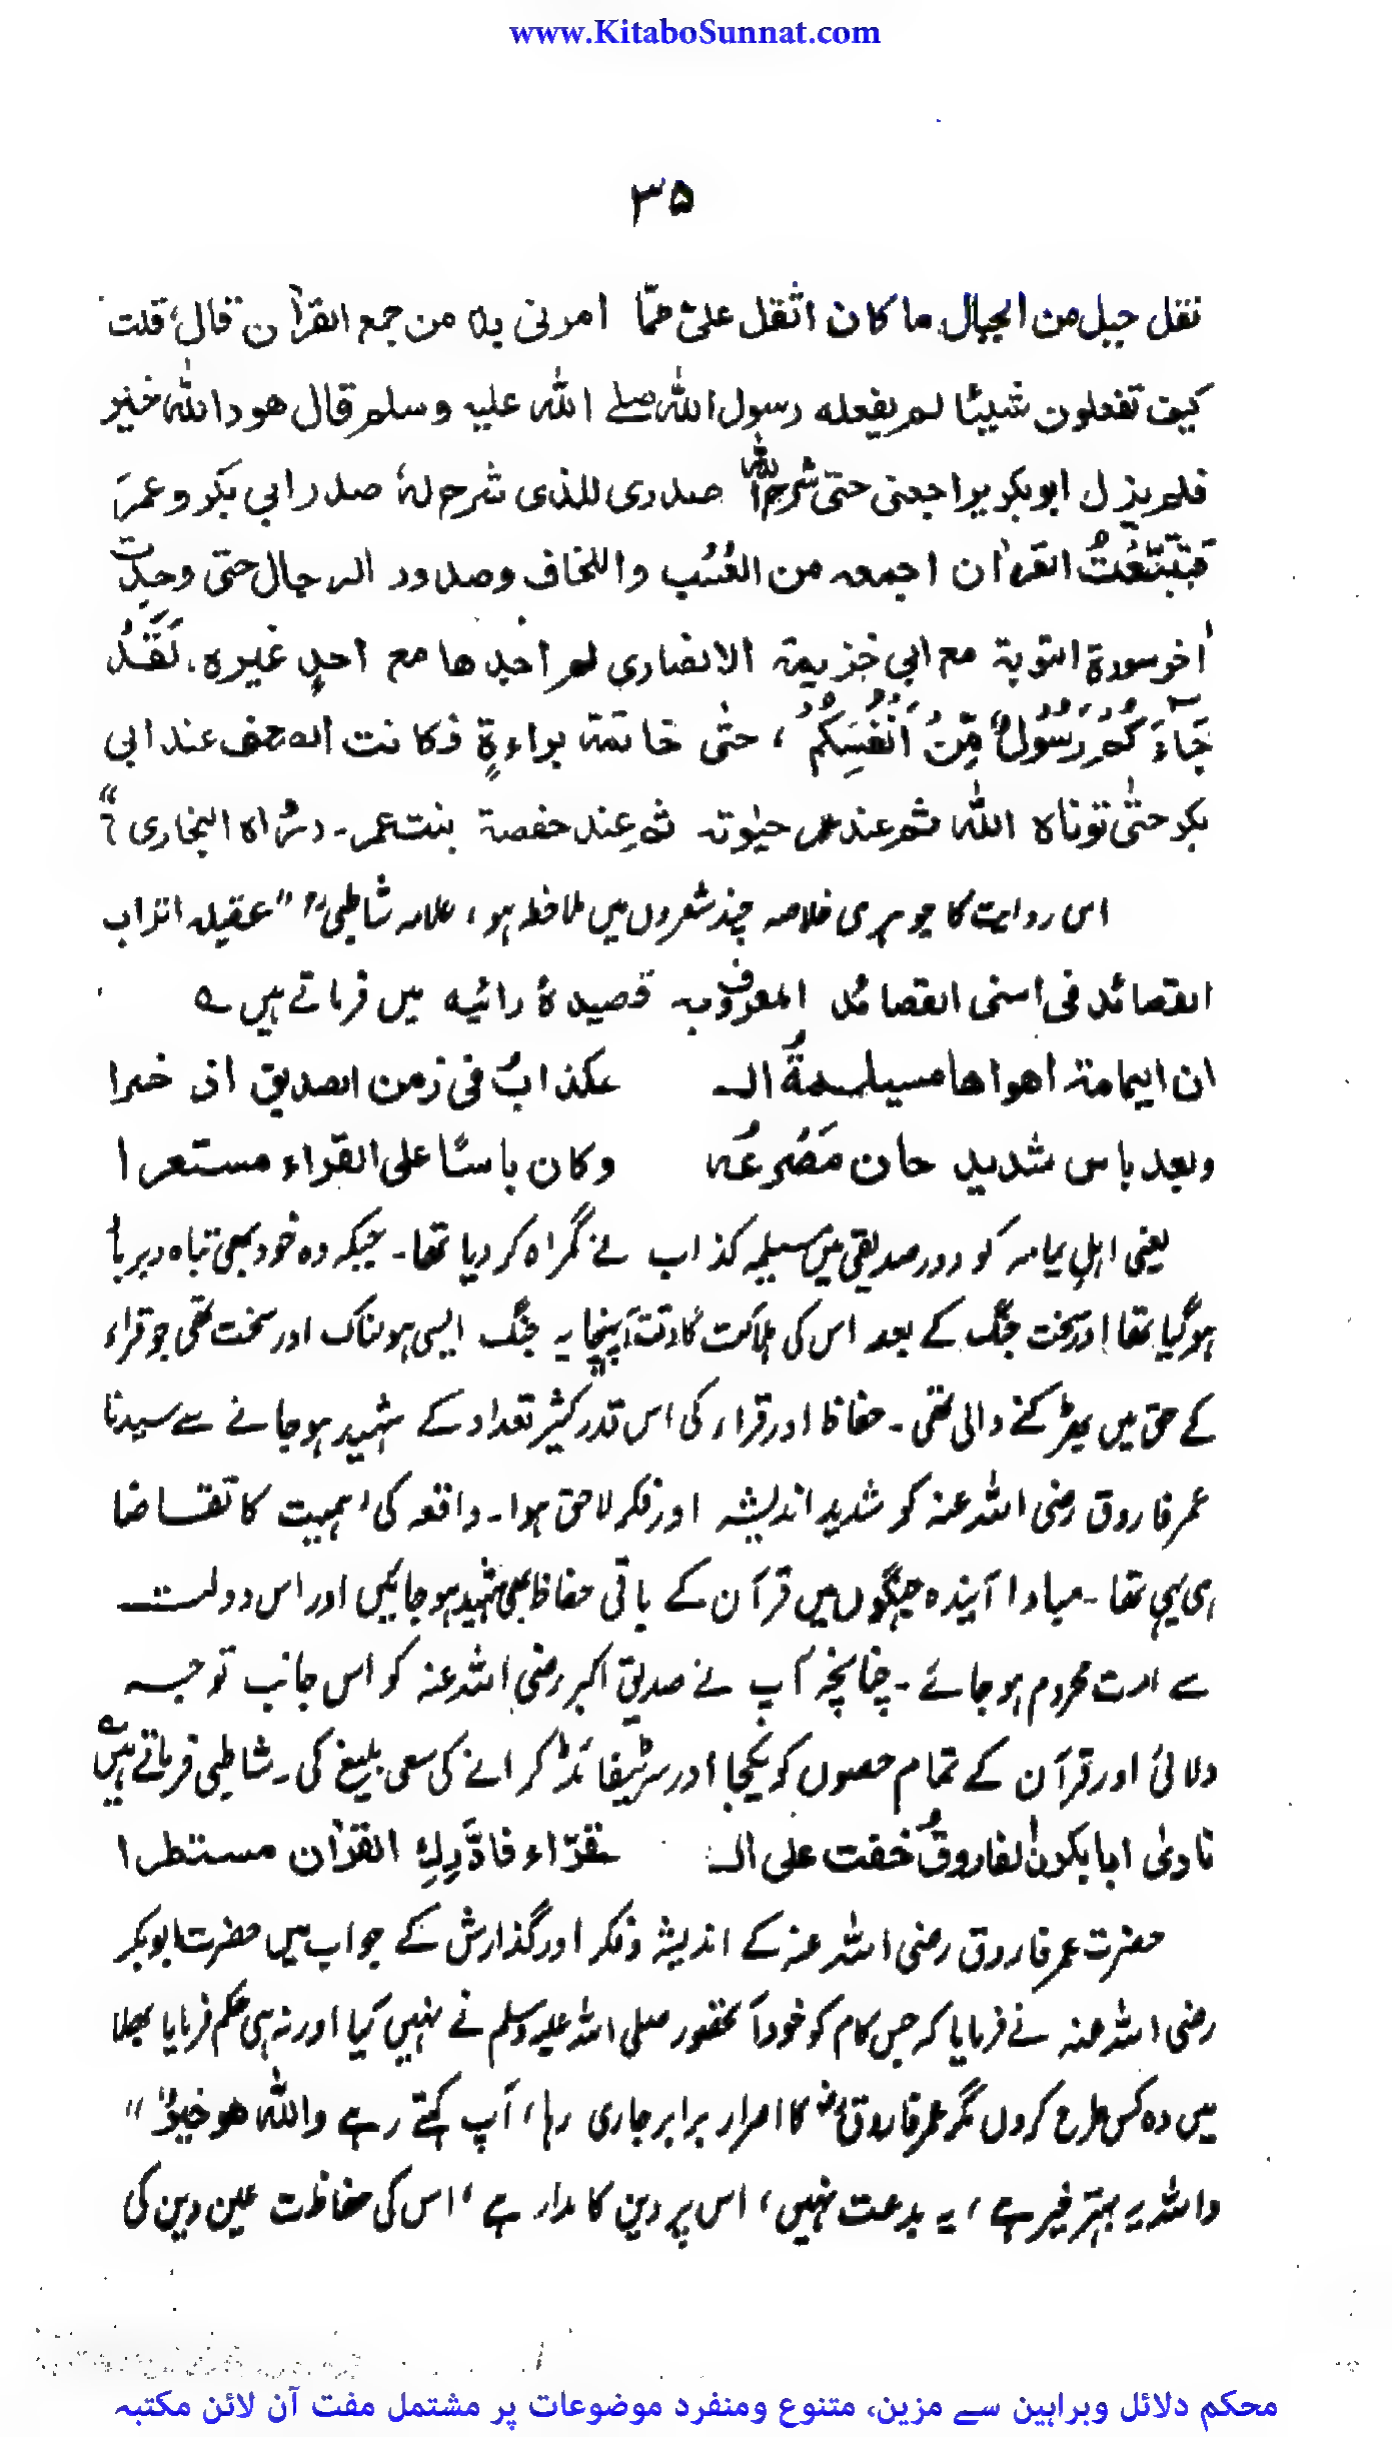 www.KitaboSunnat.com
۳۵
نقل جبل من الجبال ما کان اثقل علیّ ممّا امرنی بہ من جمع القرآن قال، قلت
کیف تفعلون شیئا لم یفعلہ رسول اللہ صلے اللہ علیہ وسلم قال ھو واللہ خیر
فلم یزل ابوبکر یراجعنی حتی شرح اللہ صدری للذی شرح لہٗ صدر ابی بکر و عمرَ
فَتَتَبَّعْتُ القرآن اجمعہ من العُسُب واللخاف وصدور الرجال حتی وجدت
اٰخر سورة التوبة مع ابی خزیمة الانصاری لم اجدھا مع احدٍ غیرہ، لَقَدْ
جَآءَ کُمْ رَسُوْلٌ مِّنْ اَنْفُسِکُمْ، حتٰی خاتمة براءةٍ فکانت الصحف عند ابی
بکر حتٰی توفاہ اللہ ثم عند عمر حیٰوتہ ثم عند حفصة بنت عمر۔ رواہ البخاری؟"
اس روایت کا جوہری خلاصہ چند شعروں میں ملاحظہ ہو، علامہ شاطبیؒ "عقیلہ اتراب
القصائد فی اسنی القصائد المعروف بہ قصیدۂ رائیہ میں فرماتے ہیں ؎
ان الیمامة اھواھا مسیلمةُ الـ ـکذابُ فی زمن الصدیق اذ خسرا
وبعد باس شدید حان مَصْرَعُہ وکان باسًا علی القرّاء مستعرا
یعنی اہلِ یمامہ کو دور صدیقی میں مسیلمہ کذاب نے گمراہ کر دیا تھا۔ جبکہ وہ خود بھی تباہ و برباد
ہو گیا تھا اور سخت جنگ کے بعد اس کی ہلاکت کا وقت آپہنچا یہ جنگ ایسی ہولناک اور سخت تھی جو قراء
کے حق میں بھڑکنے والی تھی۔ حفاظ اور قراء کی اس قدر کثیر تعداد کے شہید ہو جانے سے سیدنا
عمر فاروق رضی اللہ عنہ کو شدید اندیشہ اور فکر لاحق ہوا۔ واقعہ کی اہمیت کا تقاضا
ہی یہی تھا۔ مبادا آیندہ جنگوں میں قرآن کے باقی حفاظ بھی شہید ہو جائیں اور اس دولت
سے امت محروم ہو جائے۔ چنانچہ آپ نے صدیق اکبر رضی اللہ عنہ کو اس جانب توجہ
دلائی اور قرآن کے تمام حصوں کو یکجا اور سرٹیفائڈ کرانے کی سعی بلیغ کی۔ شاطبی فرماتے ہیں ؎
نادیٰ ابابکرنِ الفاروقُ خفت علی الـ ـقرّاء فادَّرِکِ القرآن مستطرا
حضرت عمر فاروق رضی اللہ عنہ کے اندیشہ و فکر اور گذارش کے جواب میں حضرت ابوبکر
رضی اللہ عنہ نے فرمایا کہ جس کام کو خود آنحضور صلی اللہ علیہ وسلم نے نہیں کیا اور نہ ہی حکم فرمایا بھلا
میں وہ کس طرح کروں مگر عمر فاروقؓ کا اصرار برابر جاری رہا، آپ کہتے رہے واللہ ھو خیرٌ"
واللہ یہ بہتر خیر ہے، یہ بدعت نہیں، اس پر دین کا مدار ہے، اس کی حفاظت عین دین کی
محکم دلائل وبراہین سے مزین، متنوع ومنفرد موضوعات پر مشتمل مفت آن لائن مکتبہ